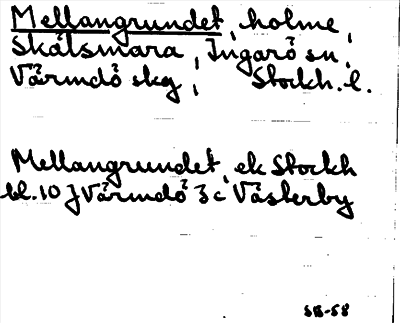 Mellangrundet, holme,
Skälsmara, Ingarö sn,
Värmdö skg, Stockh. l.
Mellangrundet, ek Stockh
bl. 10 J Värmdö 3c Västerby
SB-58